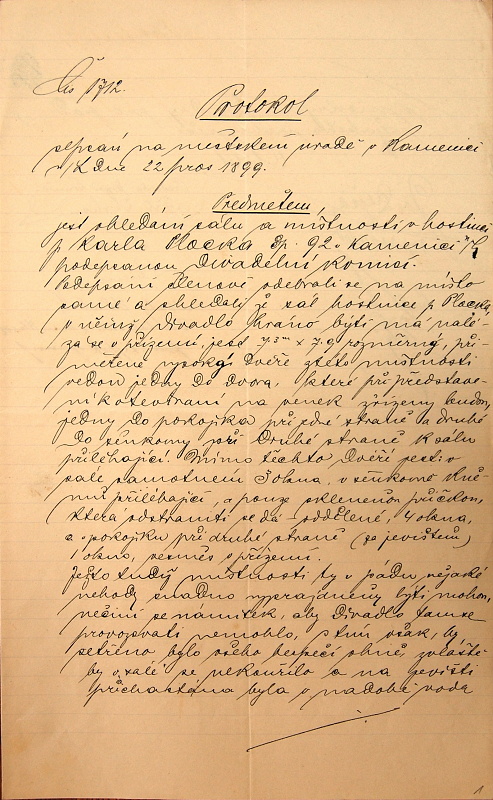 Čís 1712.
Protokol
sepsaný na městském úradě v Kamenici
n/L dne 22 pros 1899.
Předmětem,
jest shledání sálu a místnosti v hostinci
p Karla Placka čp. 92 v Kamenici n/L
podepsanou divadelní komicí.
Podepsaní členové odebrali se na místo
samé a shledali že sál hostince p Placka,
v němž divadlo hráno býti má nalé-
zá se v přízemí, jest 7.3m x 7.9 rozměrný, při-
měřeně vysoký. Dveře z této místnosti
vedou jedny do dvora, které při představe-
ní k otevírání na venek zřízeny budou,
jedny do pokojíka při jedné straně a druhé
do šenkovny při druhé straně k sálu
přiléhající. Mimo těchto dveří jest v
sále samotném 3 okna, v šenkovně k ně-
muž přiléhající, a pouze skleněnou příčkou,
která odstraniti se dá – oddělené, 4 okna,
a v pokojíku při druhé straně (za jevištěm)
1 okno, vesměs v přízemí.
Ježto tudíž místnosti ty v pádu nějaké
nehody snadno vyprázdněny býti mohou,
nečiní se námitek, aby divadlo tam se
provozovati nemohlo, s tím však, by
šetřeno bylo všeho bezpečí ohně, zvláště
by v sále se nekouřilo a na jevišti
přichystána byla v nádobě voda
1